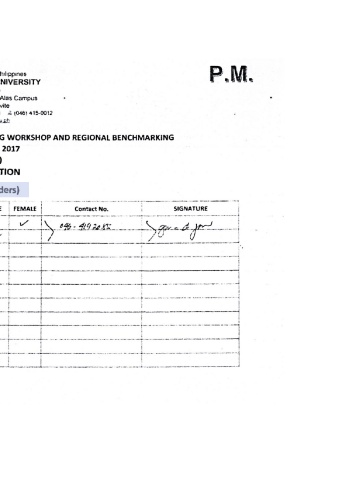 hilippines
P.M.
NIVERSITY
Alas Campus
vite
(046) 415-0012
G WORKSHOP AND REGIONAL BENCHMARKING
2017
)
TION
ders)
E FEMALE Contact No. SIGNATURE
✓